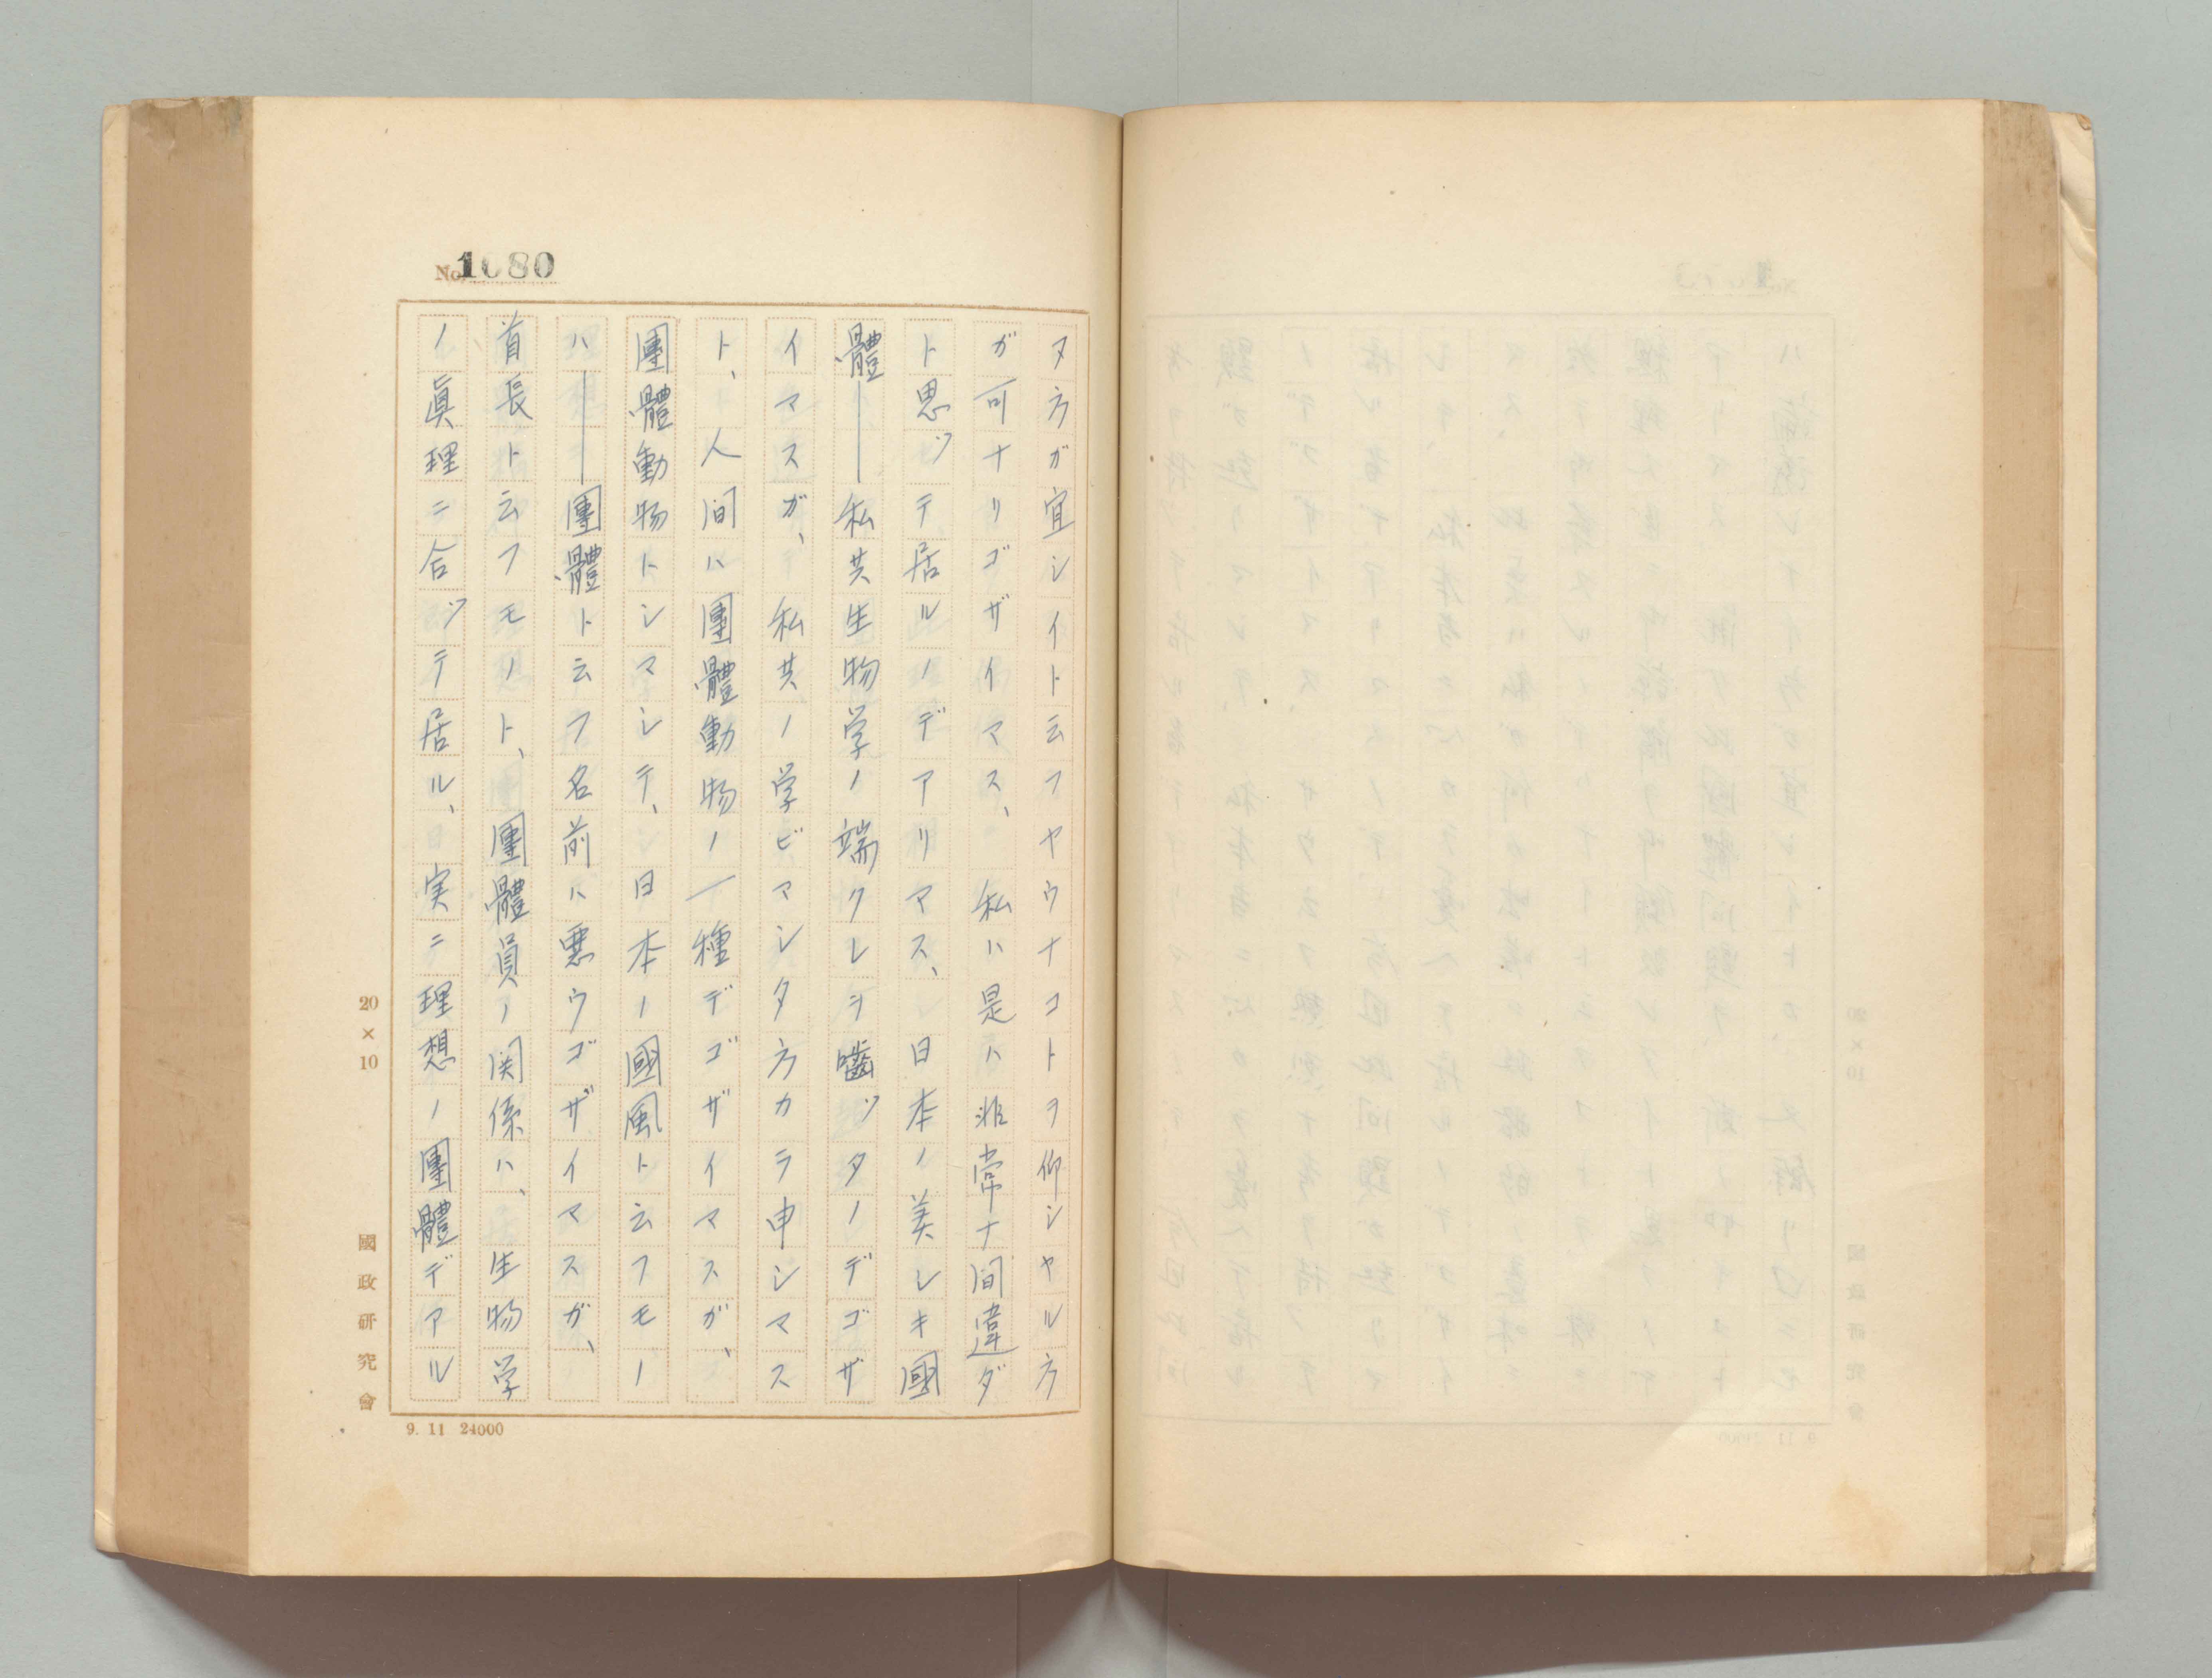 No. 1080
タ方ガ宜シイト云フヤウナコトヲ仰シヤル方
ガ可ナリゴザイマス、私ハ是ハ非常ナ間違ダ
ト思ツテ居ルノデアリマス、日本ノ美シキ國
體――私共生物学ノ端クレヲ嚙ツタノデゴザ
イマスガ、私共ノ学ビマシタ方カラ申シマス
ト、人間ハ團體動物ノ一種デゴザイマスガ、
團體動物トシマシテ、日本ノ國風ト云フモノ
ハ――團體ト云フ名前ハ悪ウゴザイマスガ、
首長ト云フモノト、團體員ノ関係ハ、生物学
ノ眞理ニ合ツテ居ル、実ニ理想ノ團體デアル
20×10
國政研究會
9. 11 24000